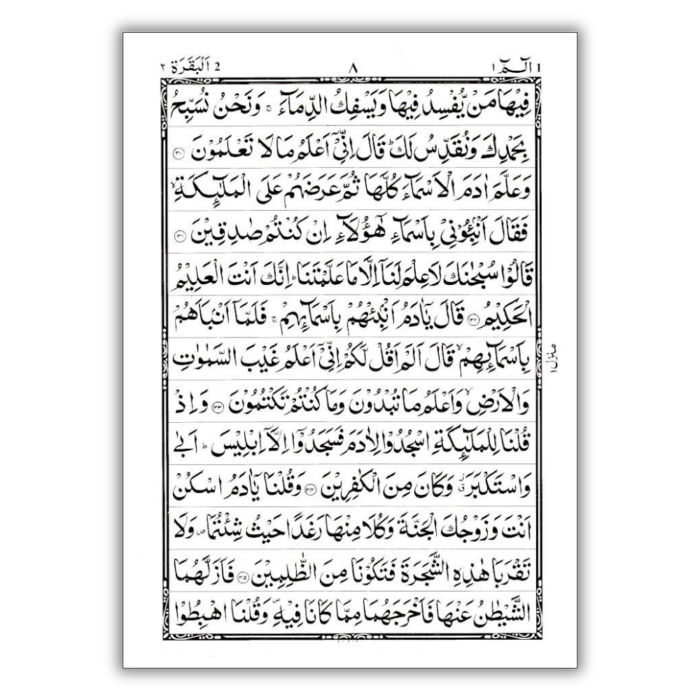 ١ الٓمّٓ 1 ٨ 2 اَلْبَقَرَة ٢
فِيْهَا مَنْ يُّفْسِدُ فِيْهَا وَيَسْفِكُ الدِّمَآءَ ۚ وَنَحْنُ نُسَبِّحُ
بِحَمْدِكَ وَنُقَدِّسُ لَكَ ؕ قَالَ اِنِّىْۤ اَعْلَمُ مَا لَا تَعْلَمُوْنَ ۝۳۰
وَعَلَّمَ اٰدَمَ الْاَسْمَآءَ كُلَّهَا ثُمَّ عَرَضَهُمْ عَلَى الْمَلٰٓئِكَةِ ۙ
فَقَالَ اَنْۢبِـُٔوْنِىْ بِاَسْمَآءِ هٰٓؤُلَآءِ اِنْ كُنْتُمْ صٰدِقِيْنَ ۝۳۱
قَالُوْا سُبْحٰنَكَ لَا عِلْمَ لَنَآ اِلَّا مَا عَلَّمْتَنَا ؕ اِنَّكَ اَنْتَ الْعَلِيْمُ
الْحَكِيْمُ ۝۳۲ قَالَ يٰۤاٰدَمُ اَنْۢبِئْهُمْ بِاَسْمَآئِهِمْ ۚ فَلَمَّآ اَنْۢبَاَهُمْ
بِاَسْمَآئِهِمْ ۙ قَالَ اَلَمْ اَقُلْ لَّكُمْ اِنِّىْۤ اَعْلَمُ غَيْبَ السَّمٰوٰتِ
وَالْاَرْضِ ۙ وَاَعْلَمُ مَا تُبْدُوْنَ وَمَا كُنْتُمْ تَكْتُمُوْنَ ۝۳۳ وَاِذْ
قُلْنَا لِلْمَلٰٓئِكَةِ اسْجُدُوْا لِاٰدَمَ فَسَجَدُوْۤا اِلَّآ اِبْلِيْسَ ؕ اَبٰى
وَاسْتَكْبَرَ ٭ۗ وَكَانَ مِنَ الْكٰفِرِيْنَ ۝۳۴ وَقُلْنَا يٰۤاٰدَمُ اسْكُنْ
اَنْتَ وَزَوْجُكَ الْجَنَّةَ وَكُلَا مِنْهَا رَغَدًا حَيْثُ شِئْتُمَا ۪ وَلَا
تَقْرَبَا هٰذِهِ الشَّجَرَةَ فَتَكُوْنَا مِنَ الظّٰلِمِيْنَ ۝۳۵ فَاَزَلَّهُمَا
الشَّيْطٰنُ عَنْهَا فَاَخْرَجَهُمَا مِمَّا كَانَا فِيْهِ ۪ وَقُلْنَا اهْبِطُوْا
منزل ١